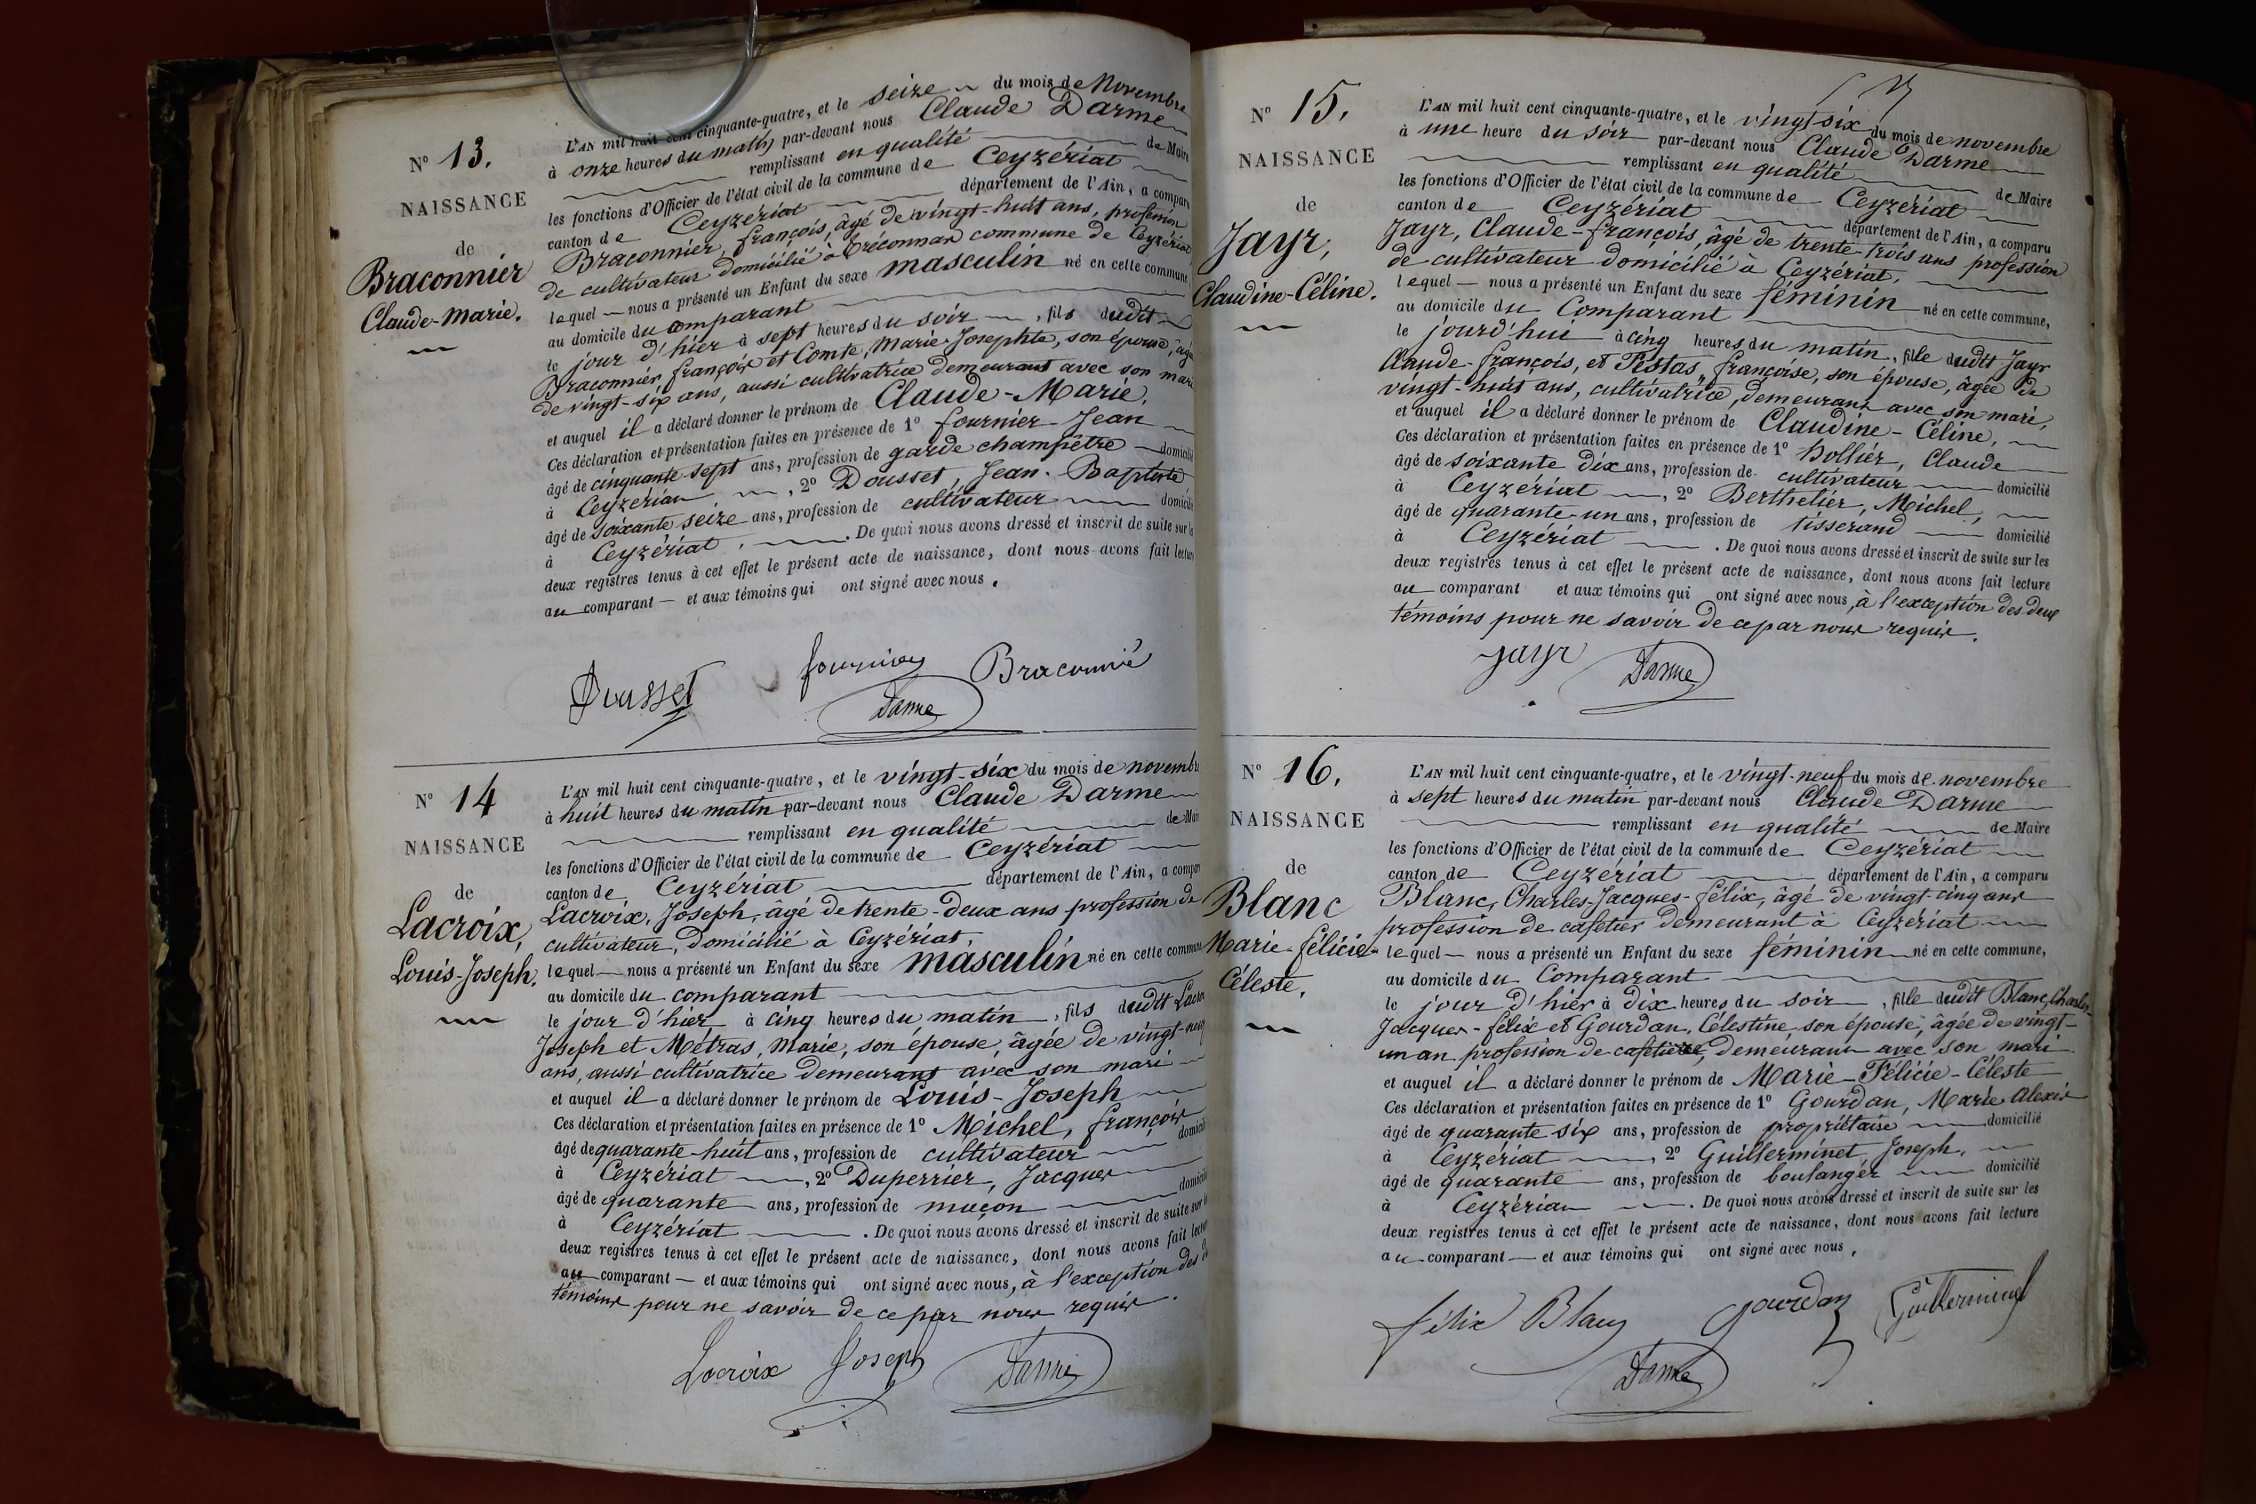 N° 13.
NAISSANCE
de
Braconnier
Claude-Marie.
L'AN mil huit cent cinquante-quatre, et le seize du mois de Novembre
à onze heures du matin par-devant nous Claude Darme
remplissant en qualité de Maire
les fonctions d'Officier de l'état civil de la commune de Ceyzériat
canton de Ceyzériat département de l'Ain, a comparu
Braconnier, françois, âgé de vingt-huit ans, profession
de cultivateur domicilié à commune de Ceyzériat
lequel nous a présenté un Enfant du sexe masculin né en cette commune
au domicile du comparant
le jour d'hier à sept heures du soir, fils dudit
Braconnier, françois et Comte, Marie-Josephte, son épouse, âgée
de vingt-six ans, aussi cultivatrice demeurant avec son mari
et auquel il a déclaré donner le prénom de Claude-Marie.
Ces déclaration et présentation faites en présence de 1° fournier Jean
âgé de cinquante-sept ans, profession de garde champêtre domicilié
à Ceyzériat, 2° Dousset, Jean-Baptiste
âgé de soixante seize ans, profession de cultivateur domicilié
à Ceyzériat. De quoi nous avons dressé et inscrit de suite sur les
deux registres tenus à cet effet le présent acte de naissance, dont nous avons fait lecture
au comparant et aux témoins qui ont signé avec nous.
Dousset fournier Braconnié
Darme
N° 14
NAISSANCE
de
Lacroix,
Louis-Joseph.
L'AN mil huit cent cinquante-quatre, et le vingt-six du mois de novembre
à huit heures du matin par-devant nous Claude Darme
remplissant en qualité de Maire
les fonctions d'Officier de l'état civil de la commune de Ceyzériat
canton de Ceyzériat département de l'Ain, a comparu
Lacroix, Joseph, âgé de trente-deux ans profession de
cultivateur, domicilié à Ceyzériat,
lequel nous a présenté un Enfant du sexe masculin né en cette commune
au domicile du comparant
le jour d'hier à cinq heures du matin, fils dudit Lacroix
Joseph et Métras, Marie, son épouse, âgée de vingt-neuf
ans, aussi cultivatrice demeurant avec son mari
et auquel il a déclaré donner le prénom de Louis-Joseph
Ces déclaration et présentation faites en présence de 1° Michel, françois
âgé de quarante-huit ans, profession de cultivateur domicilié
à Ceyzériat, 2° Duperrier, Jacques
âgé de quarante ans, profession de maçon domicilié
à Ceyzériat. De quoi nous avons dressé et inscrit de suite sur les
deux registres tenus à cet effet le présent acte de naissance, dont nous avons fait lecture
au comparant et aux témoins qui ont signé avec nous, à l'exception des
témoins pour ne savoir de ce par nous requis.
Lacroix Joseph Darme
N° 15.
NAISSANCE
de
Jayr,
Claudine-Céline.
L'AN mil huit cent cinquante-quatre, et le vingt six du mois de novembre
à une heure du soir par-devant nous Claude Darme
remplissant en qualité de Maire
les fonctions d'Officier de l'état civil de la commune de Ceyzériat
canton de Ceyzériat département de l'Ain, a comparu
Jayr, Claude-françois, âgé de trente-trois ans profession
de cultivateur domicilié à Ceyzériat,
lequel nous a présenté un Enfant du sexe féminin né en cette commune,
au domicile du Comparant
le jourd'hui à cinq heures du matin, fille dudit Jayr
Claude-françois, et Pestas, françoise, son épouse, âgée de
vingt-huit ans, cultivatrice, demeurant avec son mari,
et auquel il a déclaré donner le prénom de Claudine-Céline,
Ces déclaration et présentation faites en présence de 1° hollier, Claude
âgé de soixante dix ans, profession de cultivateur domicilié
à Ceyzériat, 2° Berthelier, Michel,
âgé de quarante-un ans, profession de tisserand domicilié
à Ceyzériat. De quoi nous avons dressé et inscrit de suite sur les
deux registres tenus à cet effet le présent acte de naissance, dont nous avons fait lecture
au comparant et aux témoins qui ont signé avec nous, à l'exception des deux
témoins pour ne savoir de ce par nous requis.
Jayr Darme
N° 16.
NAISSANCE
de
Blanc
Marie-félicie-
Céleste,
L'AN mil huit cent cinquante-quatre, et le vingt-neuf du mois de novembre
à sept heures du matin par-devant nous Claude Darme
remplissant en qualité de Maire
les fonctions d'Officier de l'état civil de la commune de Ceyzériat
canton de Ceyzériat département de l'Ain, a comparu
Blanc, Charles-Jacques-félix, âgé de vingt-cinq ans
profession de cafetier demeurant à Ceyzériat
lequel nous a présenté un Enfant du sexe féminin né en cette commune,
au domicile du Comparant
le jour d'hier à dix heures du soir, fille dudit Blanc, Charles-
Jacques-félix et Gourdan, Célestine son épouse, âgée de vingt-
un an profession de cafetière, demeurant avec son mari
et auquel il a déclaré donner le prénom de Marie-Félicie-Céleste
Ces déclaration et présentation faites en présence de 1° Gourdan, Marie Alexis
âgé de quarante six ans, profession de propriétaire domicilié
à Ceyzériat, 2° Guillerminet, Joseph,
âgé de quarante ans, profession de boulanger domicilié
à Ceyzériat. De quoi nous avons dressé et inscrit de suite sur les
deux registres tenus à cet effet le présent acte de naissance, dont nous avons fait lecture
au comparant et aux témoins qui ont signé avec nous.
félix Blanc Gourdan Guillerminet
Darme